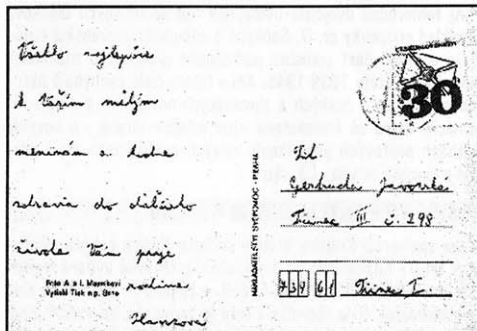 Všetko najlepšie
k Vašim milým
meninám a hodne
zdravia do ďalšieho
života Vám praje
rodina
Fríde A a I. Maorikovi
Vyšlski Tisk n.p. Brno
NAKLADATELSTVÍ SVÉPOMOC - PRAHA
30
Tit.
Gertruda Javorská
Třinec III č. 298
739 61 Třinec I